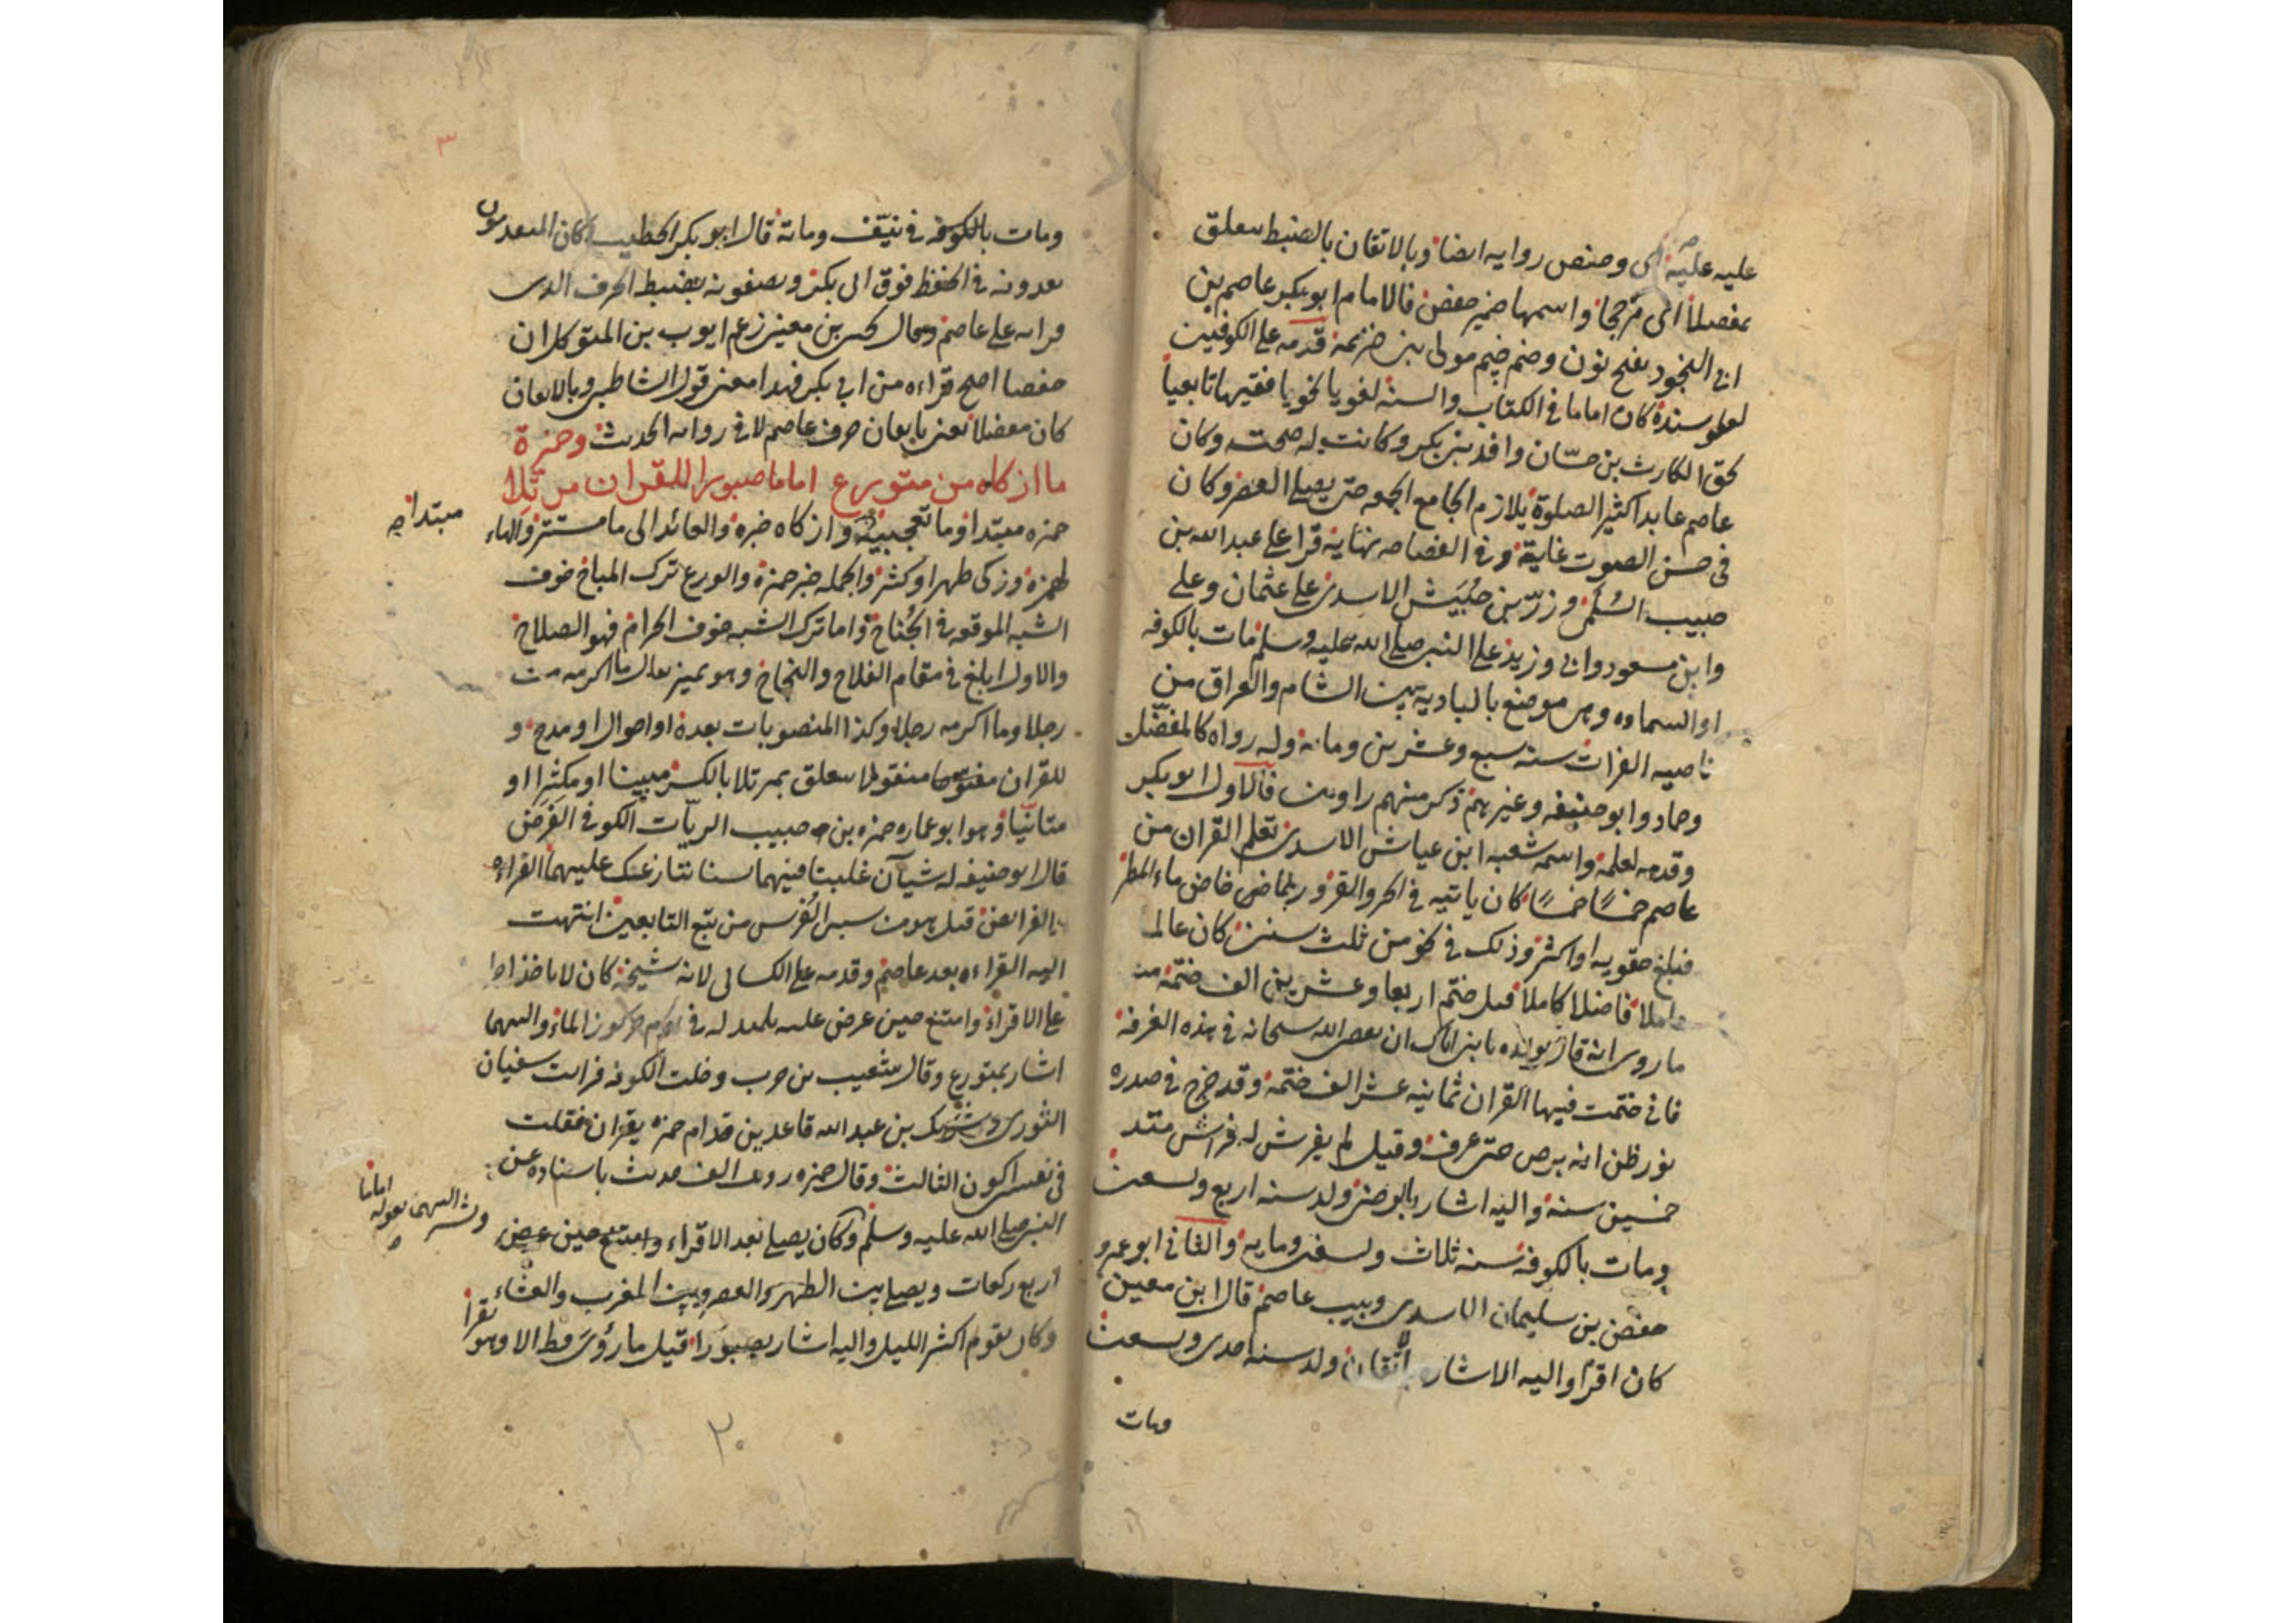 عليه علية اى وحفص روايه ايضا وبالاتقان بالضبط متعلق
بمفضلا اى مرجحا واسمها ضمير حفص فالامام ابو بكر عاصم بن
ابى النجود بفتح نون وضم جيم مولى بنى خزيمة قدمه على الكوفيين
لعلو سنده كان اماما فى الكتاب والسنة لغويا نحويا فقيها تابعيا
لحق الحارث بن حسان وافد بنى بكر وكانت له صحبته وكان
عاصم عابدا كثير الصلوة يلازم الجامع الجمعه حتى يصلى العصر وكان
فى حسن الصوت غاية وفى الفصاحه نهاية قرأ على عبد الله بن
حبيب السلمى وزرّ بن حبيش الاسدى على عثمان وعلى
وابن مسعود وابى وزيد على النبى صلى الله عليه وسلم مات بالكوفه
او السماوه وهى موضع بالباديه بين الشام والعراق من
ناحيه الفرات سنه سبع وعشرين ومائه وله رواه كالمفضل
وحماد وابو حنيفه وغيرهم ذكر منهم راويين فالاول ابو بكر
وقدمه لعلمه واسمه شعبه ابن عياش الاسدى تعلم القران من
عاصم خمسًا خمسًا كان ياتيه فى الحر والقر وربما خاض ماء المطر
فبلغ حقويه او اكثر وذلك فى نحو من ثلث سنين كان عالما
عاملا فاضلا كاملا قيل ختم اربعا وعشرين الف ختمة منه
ما روى انه قال لولده يا بنى اياك ان تعصى الله سبحانه فى هذه الغرفة
فانى ختمت فيها القران ثمانيه عشر الف ختمة وقد خرج فى صدره
نور ظن انه برص حتى عرف وقيل لم يفرش له فراش منذ
خمسين سنة واليه اشار بالرضى ولد سنه اربع وتسعين
ومات بالكوفة سنه ثلاث وتسعين ومايه والثانى ابو عمرو
حفص بن سليمان الاسدى ربيب عاصم قال ابن معين
كان اقرأ واليه الاشاره بالاتقان ولد سنه احدى وتسعين
ومات
٣
ومات بالكوفه فى نيّف ومائة قال ابو بكر الخطيب كان المتقدمون
يعدونه فى الحفظ فوق ابى بكر ويصفونه بضبط الحرف الذى
قرأه على عاصم وقال يحيى بن معين زعم ايوب بن المتوكل ان
حفصا اصح قراءه من ابى بكر فهذا معنى قول الشاطبى وبالاتقان
كان مفضلا يعنى باتقان حرف عاصم لا فى روايه الحديث وحمزة
ما ازكاه من متورع اماما صبورا للقران مرتلا
حمزه مبتدا وما تعجبية وازكاه خبره والعائد الى ما مستتر والهاء
مبتدا صح
لحمزه وزكى طهر او كثر والجمله خبر حمزة والورع ترك المباح خوف
الشبه الموقعه فى الجناح واما ترك الشبه خوف الحرام فهو الصلاح
والاول ابلغ فى مقام الفلاح والنجاح وهو تميز يقال ما اكرمه من
رجل وما اكرمه رجلا وكذا المنصوبات بعده او احوال او مدح و
للقران مفتوحا منقولا متعلق بمرتلا بالكسر مبينا او مكثرا او
متانيّا وهو ابو عماره حمزه بن حبيب الزيّات الكوفى الفرضى
قال ابو حنيفه له شيآن غلبتنا فيهما لسنا ننازعك عليهما القراءه
والفرائض قيل هو من سبى الفرس من تبع التابعين انتهت
اليه القراءه بعد عاصم وقدمه على الكسائى لانه شيخه كان لا ياخذ اجرا
على الاقراء وامتنع حين عرض عليه تلميذ له فى يوم حر كوز الماء واليهما
اشار بمتورع وقال شعيب بن حرب دخلت الكوفه فرايت سفيان
الثورى وشريك بن عبد الله قاعدين قدام حمزه يقران فقلت
فى نفسى اكون الثالث وقال حمزه رويت الف حديث باسناده عن
النبى صلى الله عليه وسلم وكان يصلى بعد الاقراء وامتنع حين عرض
اماما
اربع ركعات ويصلى بين الظهر والعصر وبين المغرب والعشاء
وكان يقوم اكثر الليل واليه اشار بصبورا قيل ما رؤى قط الا وهو يقرأ
٢٠